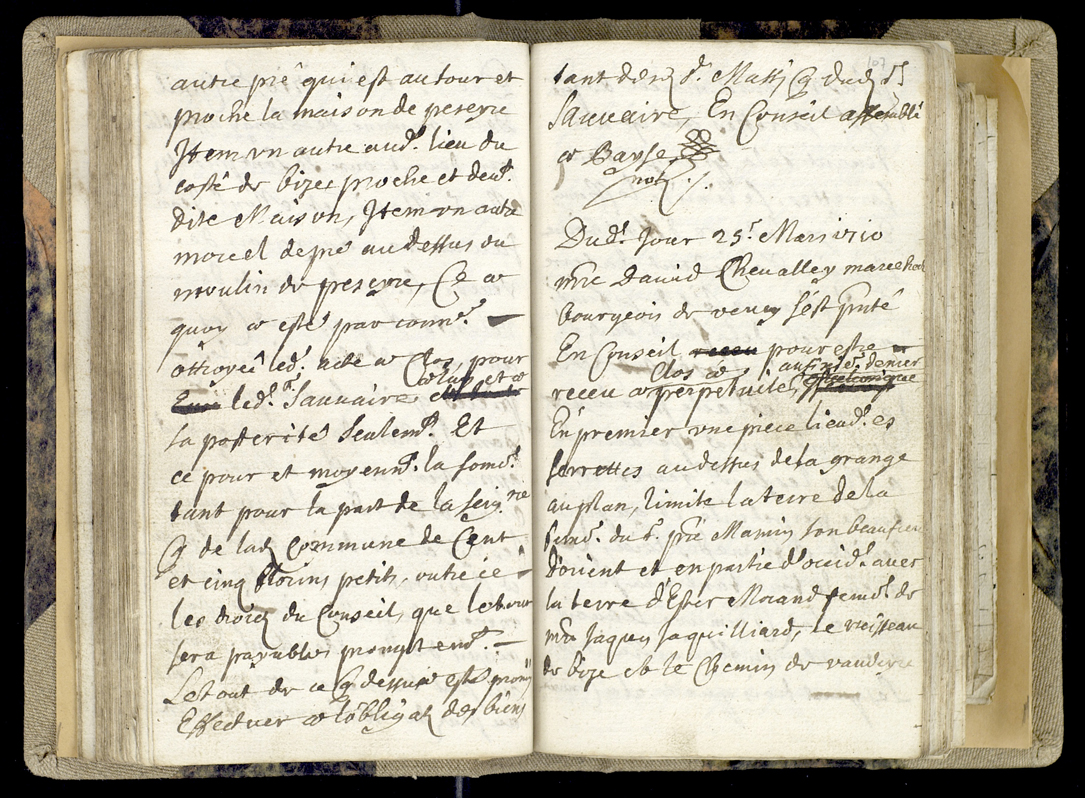 autre pré qui est autour et
proche la maison de peseyre
Item vn autre aud.t lieu du
costé de bize proche et deu.t
dite Maison, Item vn autre
morcel de pré au dessus du
moulin de peseyre, Ce
quoy a esté par comm.t
ottroyé led.t acte a Clos, pour
a luy et a
led.t S.r Sauuaire
sa posterité seulem.t Et
ce pour et moyenn.t la som.e
tant pour la part de la seig.rie
q de lad commune de Cent
et cinq florins petits, outre ce
les droicts du Conseil, que le tout
sera payable promptem.t
Le tout de ce q dessus est promis
Effectuer a l'obligaõn des biens
107
tant desd S.rs q dud S.r
Sauuaire, En Conseil assemblé
Bayse
not
Dud.t Jour 25.e Mars 1710
m.re Dauid Cheualley marechal
bourgeois de veuey s'est pnté
En Conseil receu pour estre
Clos a aux fins de denier
receu a perpetuité,
En premier vne piece lieud.t es
ferrettes au dessus de la grange
au plan, limite la terre de la
fem.e du S.r Mamin son beaufrere
d'orient et en partie d'occid.t auec
la terre d'Ester Morand fem.e de
m.re Jaques Jaquilliard, le ruisseau
de bize et le Chemin de